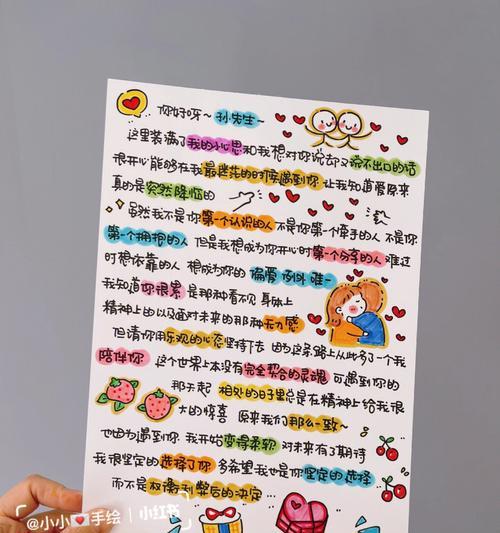 你好呀~孙先生~
这里装满了我的小心思和我想对你说却又说不出口的话
很开心能够在我最迷茫的时候遇到你 让我知道爱原来
真的是突然降临的
虽然我不是你第一个认识的人 不是你第一个牵手的人 不是你
第一个拥抱的人 但是我想成为你开心时第一个分享的人 难过
时想依靠的人 想成为你的 偏爱 例外 唯一
我知道你很累 是那种看不见 身体上
精神上的以及面对未来的那种无力感
但请你用乐观的心态坚持下去 因为这条路上从此多了一个我
陪伴你 这个世界上本没有完全契合的灵魂 可遇到你的
那天起 相处的日子里总是在精神上给我很
大的惊喜 原来我们那么一致~
也因为遇到你 我开始变得柔软 对未来有了期待
我很坚定的选择了你 多希望我也是你坚定的选择
而不是权衡利弊后的决定...
@小小手绘 | 小红书